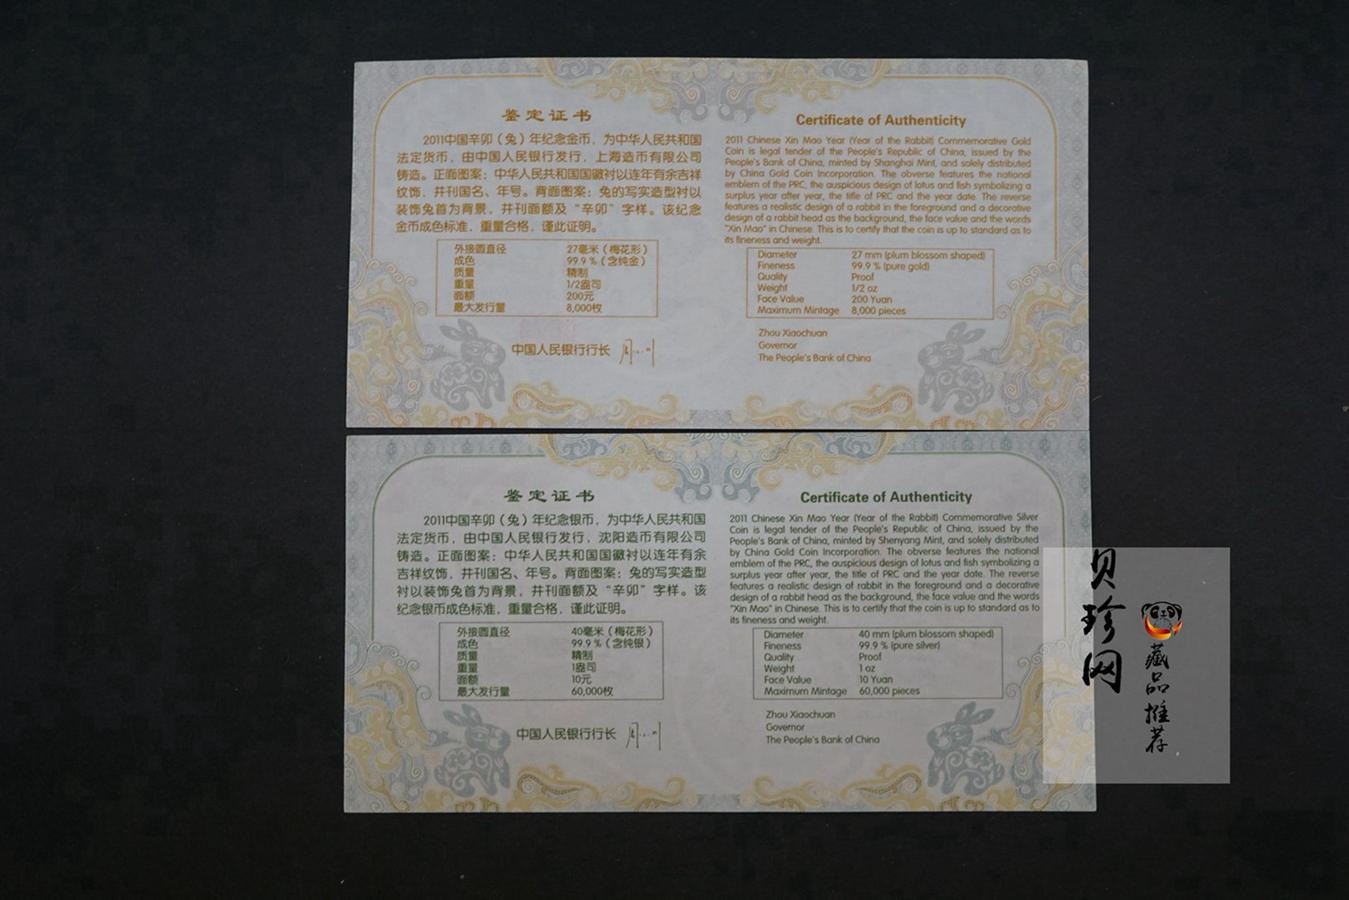 鉴定证书
2011中国辛卯（兔）年纪念金币，为中华人民共和国
法定货币，由中国人民银行发行，上海造币有限公司
铸造。正面图案：中华人民共和国国徽衬以连年有余吉祥
纹饰，并刊国名、年号。背面图案：兔的写实造型衬以
装饰兔首为背景，并刊面额及“辛卯”字样。该纪念
金币成色标准，重量合格，谨此证明。
外接圆直径 27毫米（梅花形）
成色 99.9％（含纯金）
质量 精制
重量 1/2盎司
面额 200元
最大发行量 8,000枚
中国人民银行行长
Certificate of Authenticity
2011 Chinese Xin Mao Year (Year of the Rabbit) Commemorative Gold
Coin is legal tender of the People's Republic of China, issued by the
People's Bank of China, minted by Shanghai Mint, and solely distributed
by China Gold Coin Incorporation. The obverse features the national
emblem of the PRC, the auspicious design of lotus and fish symbolizing a
surplus year after year, the title of PRC and the year date. The reverse
features a realistic design of a rabbit in the foreground and a decorative
design of a rabbit head as the background, the face value and the words
"Xin Mao" in Chinese. This is to certify that the coin is up to standard as to
its fineness and weight.
Diameter 27 mm (plum blossom shaped)
Fineness 99.9 % (pure gold)
Quality Proof
Weight 1/2 oz
Face Value 200 Yuan
Maximum Mintage 8,000 pieces
Zhou Xiaochuan
Governor
The People's Bank of China
鉴定证书
2011中国辛卯（兔）年纪念银币，为中华人民共和国
法定货币，由中国人民银行发行，沈阳造币有限公司
铸造。正面图案：中华人民共和国国徽衬以连年有余
吉祥纹饰，并刊国名、年号。背面图案：兔的写实造型
衬以装饰兔首为背景，并刊面额及“辛卯”字样。该
纪念银币成色标准，重量合格，谨此证明。
外接圆直径 40毫米（梅花形）
成色 99.9％（含纯银）
质量 精制
重量 1盎司
面额 10元
最大发行量 60,000枚
中国人民银行行长
Certificate of Authenticity
2011 Chinese Xin Mao Year (Year of the Rabbit) Commemorative Silver
Coin is legal tender of the People's Republic of China, issued by the
People's Bank of China, minted by Shenyang Mint, and solely distributed
by China Gold Coin Incorporation. The obverse features the national
emblem of the PRC, the auspicious design of lotus and fish symbolizing a
surplus year after year, the title of PRC and the year date. The reverse
features a realistic design of rabbit in the foreground and a decorative
design of a rabbit head as the background, the face value and the words
"Xin Mao" in Chinese. This is to certify that the coin is up to standard as to
its fineness and weight.
Diameter 40 mm (plum blossom shaped)
Fineness 99.9 % (pure silver)
Quality Proof
Weight 1 oz
Face Value 10 Yuan
Maximum Mintage 60,000 pieces
Zhou Xiaochuan
Governor
The People's Bank of China
贝珍网
藏品推荐